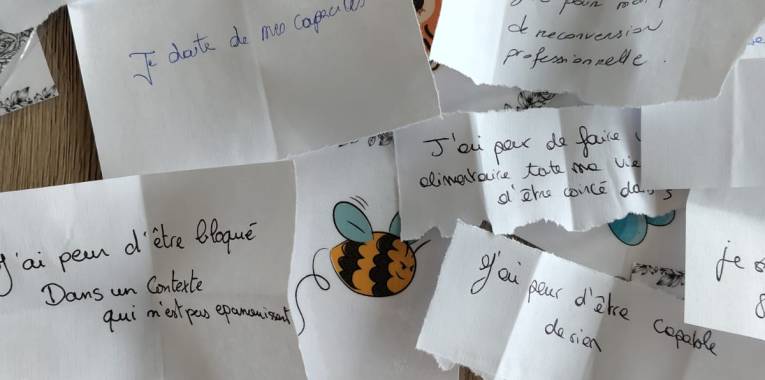 Je doute de mes capacités
peur
de reconversion
professionnelle.
J'ai peur de faire
alimentaire toute ma vie
d'être coincé dans
J'ai peur d'être bloqué
Dans un Contexte
qui n'est pas epanouissant
J'ai peur d'être capable
de rien
je